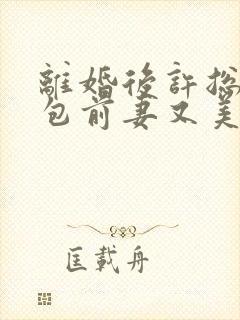 離婚後許總
包前妻又美
匡載舟